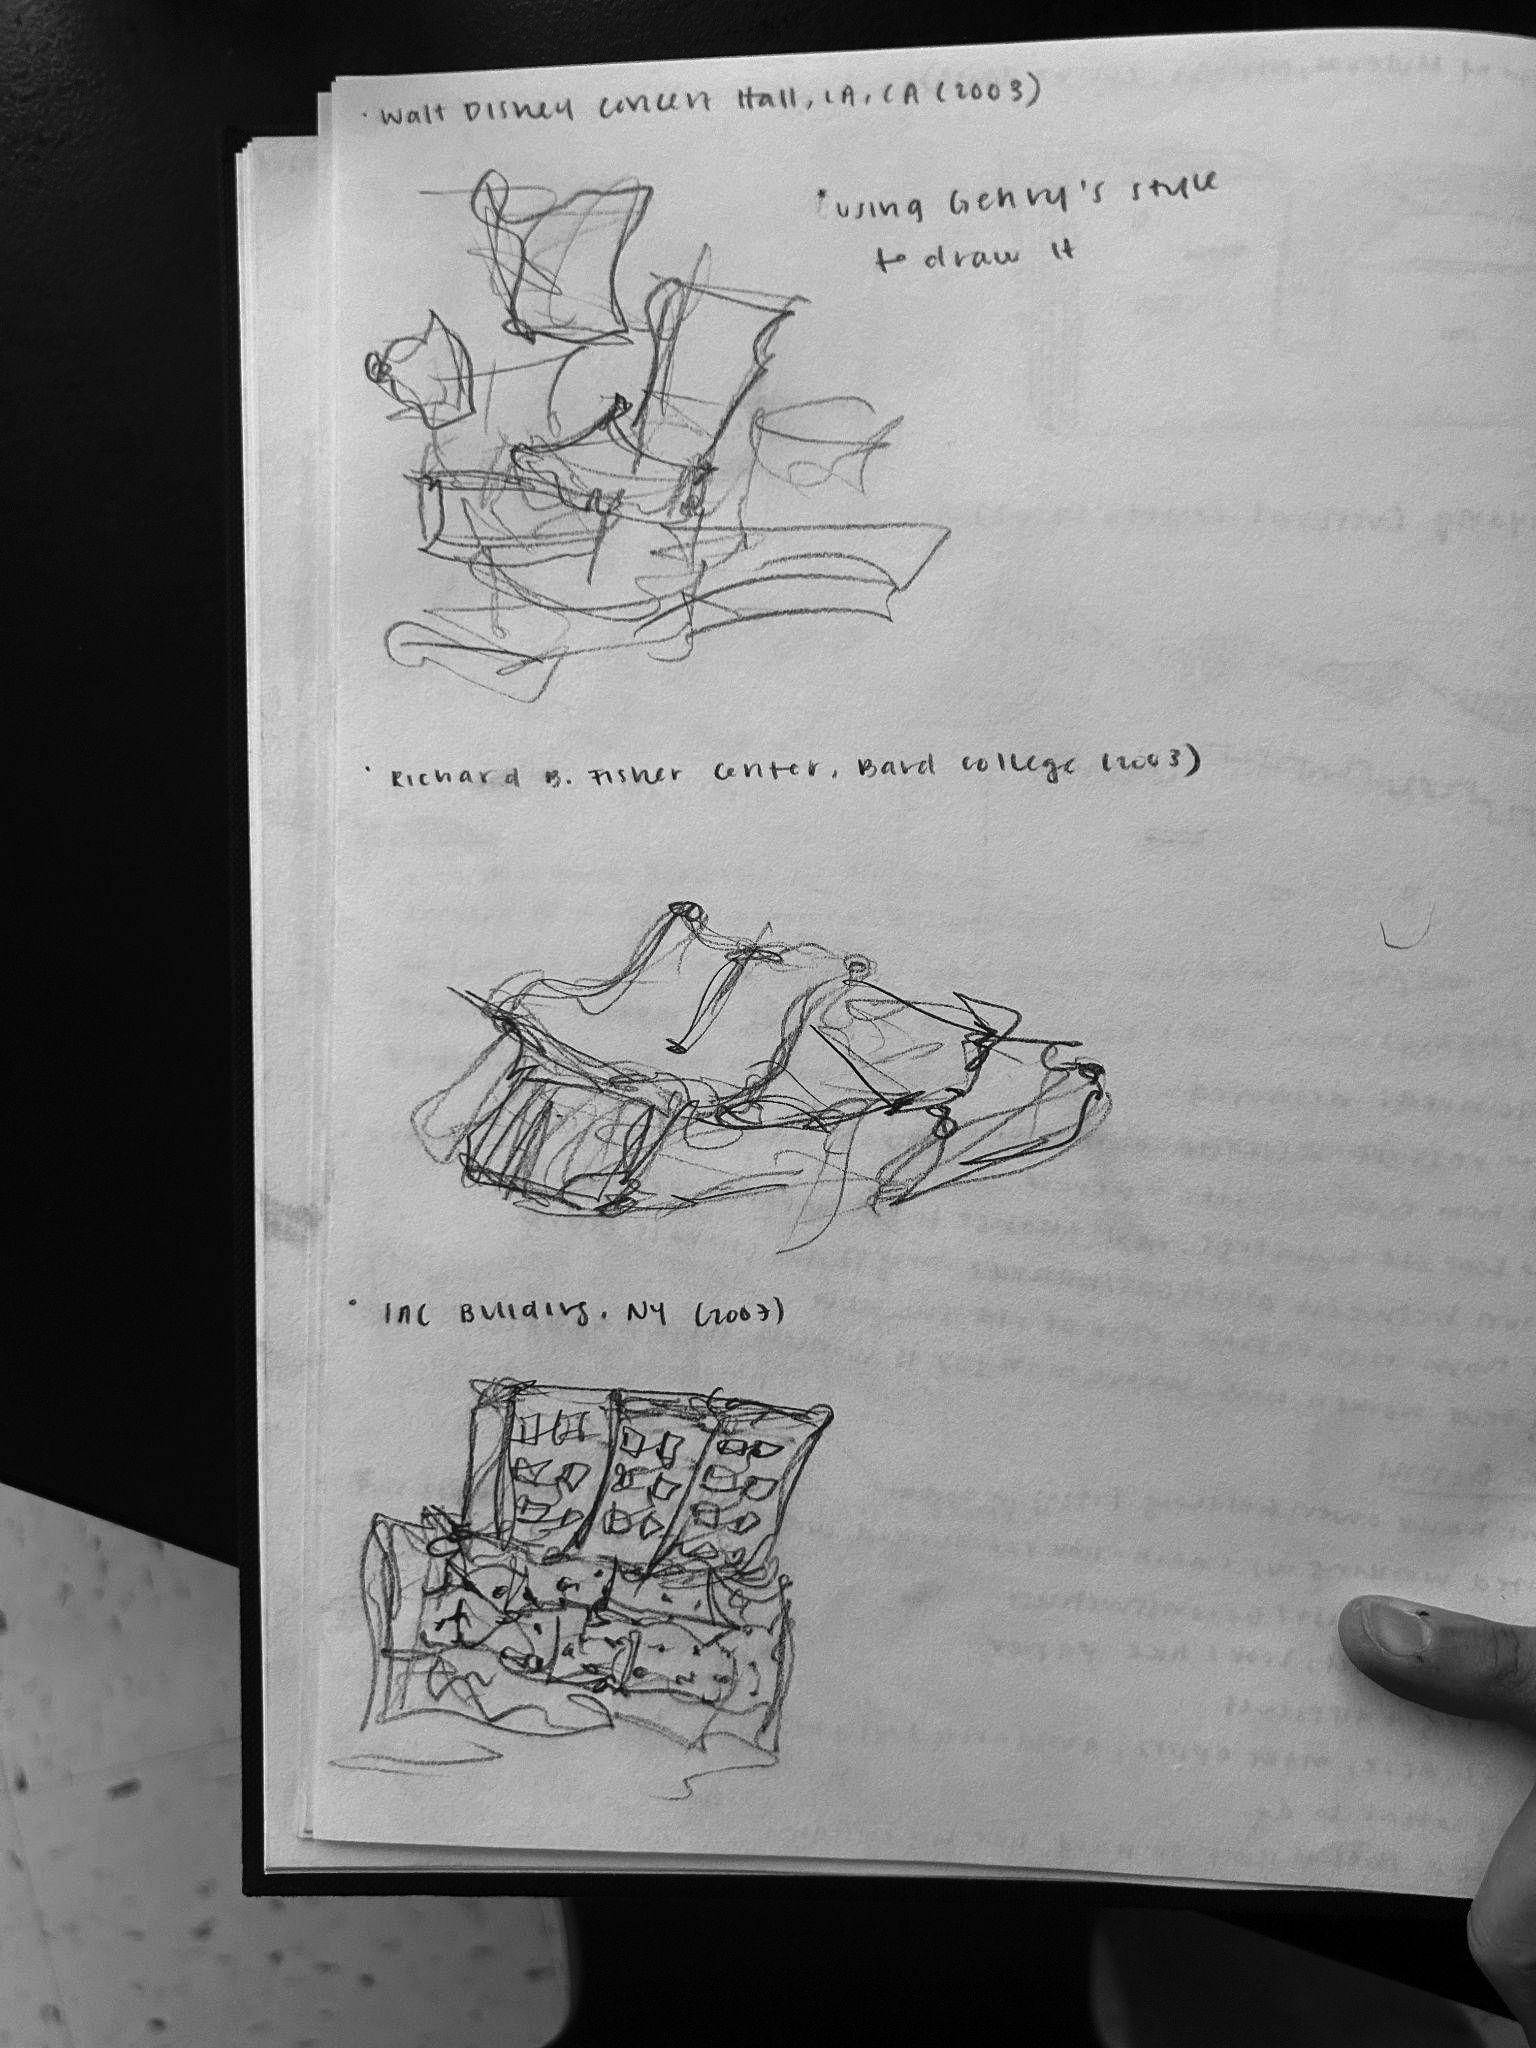 • Walt Disney Concert Hall, LA, CA (2003)
• using Gehry's style
to draw it
• Richard B. Fisher Center, Bard College (2003)
• IAC Building, NY (2007)